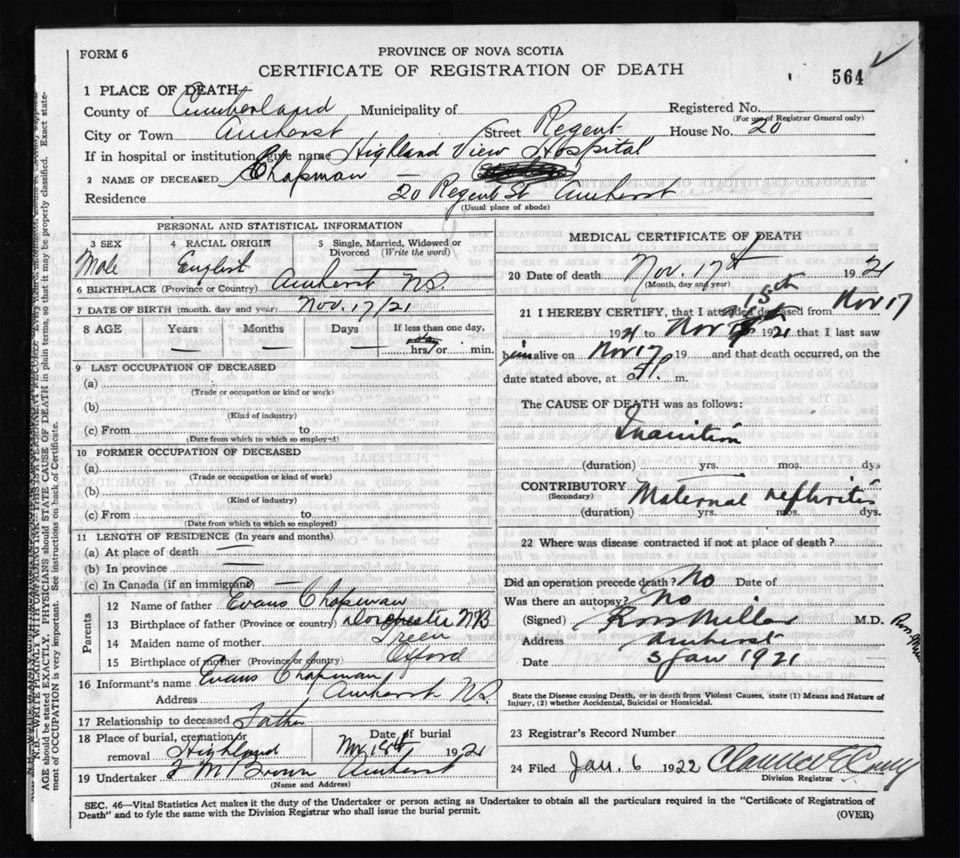 FORM 6
PROVINCE OF NOVA SCOTIA
CERTIFICATE OF REGISTRATION OF DEATH
564
1 PLACE OF DEATH
County of Cumberland Municipality of Registered No.
(For use of Registrar General only)
City or Town Amherst Street Regent House No. 20
If in hospital or institution, give name Highland View Hospital
2 NAME OF DECEASED Chapman —
Residence 20 Regent St Amherst
(Usual place of abode)
PERSONAL AND STATISTICAL INFORMATION
3 SEX 4 RACIAL ORIGIN 5 Single, Married, Widowed or Divorced (Write the word)
Male English —
6 BIRTHPLACE (Province or Country) Amherst NS.
7 DATE OF BIRTH (month, day and year) Nov. 17/21
8 AGE Years Months Days If less than one day,
— — — hrs/or min.
9 LAST OCCUPATION OF DECEASED
(a)
(Trade or occupation or kind or work)
(b)
(Kind of industry)
(c) From to
(Date from which to which so employed)
10 FORMER OCCUPATION OF DECEASED
(a)
(Trade or occupation or kind of work)
(b)
(Kind of industry)
(c) From to
(Date from which to which so employed)
11 LENGTH OF RESIDENCE (In years and months)
(a) At place of death —
(b) In province —
(c) In Canada (if an immigrant) —
Parents
12 Name of father Evans Chapman
13 Birthplace of father (Province or country) Dorchester NB
14 Maiden name of mother Treen
15 Birthplace of mother (Province or country) Oxford
16 Informant's name Evans Chapman
Address Amherst NS.
17 Relationship to deceased Father
18 Place of burial, cremation or removal Highland Date of burial Nov 18th 1921
19 Undertaker F M Brown Amherst
(Name and Address)
MEDICAL CERTIFICATE OF DEATH
20 Date of death Nov. 17th 1921
(Month, day and year)
21 I HEREBY CERTIFY, that I attended deceased from Nov 17
1921 to Nov 18th 1921 that I last saw
him alive on Nov 17 19 and that death occurred, on the
date stated above, at m.
The CAUSE OF DEATH was as follows:
Inanition
(duration) yrs. mos. dys
CONTRIBUTORY Maternal nephritis
(Secondary)
(duration) yrs. mos. dys.
22 Where was disease contracted if not at place of death?
Did an operation precede death? No Date of
Was there an autopsy? No
(Signed) Ross Millar M.D.
Address Amherst
Date 5 Jan 1921
State the Disease causing Death, or in death from Violent Causes, state (1) Means and Nature of
Injury, (2) whether Accidental, Suicidal or Homicidal.
23 Registrar's Record Number
24 Filed Jan. 6 1922
Division Registrar
SEC. 46—Vital Statistics Act makes it the duty of the Undertaker or person acting as Undertaker to obtain all the particulars required in the "Certificate of Registration of
Death" and to fyle the same with the Division Registrar who shall issue the burial permit.
(OVER)
N.B.—WRITE PLAINLY WITH UNFADING INK—THIS IS A PERMANENT RECORD.
AGE should be stated EXACTLY. PHYSICIANS should STATE CAUSE OF DEATH in plain terms, so that it may be properly classified. Exact state-
ment of OCCUPATION is very important. See instructions on back of Certificate.